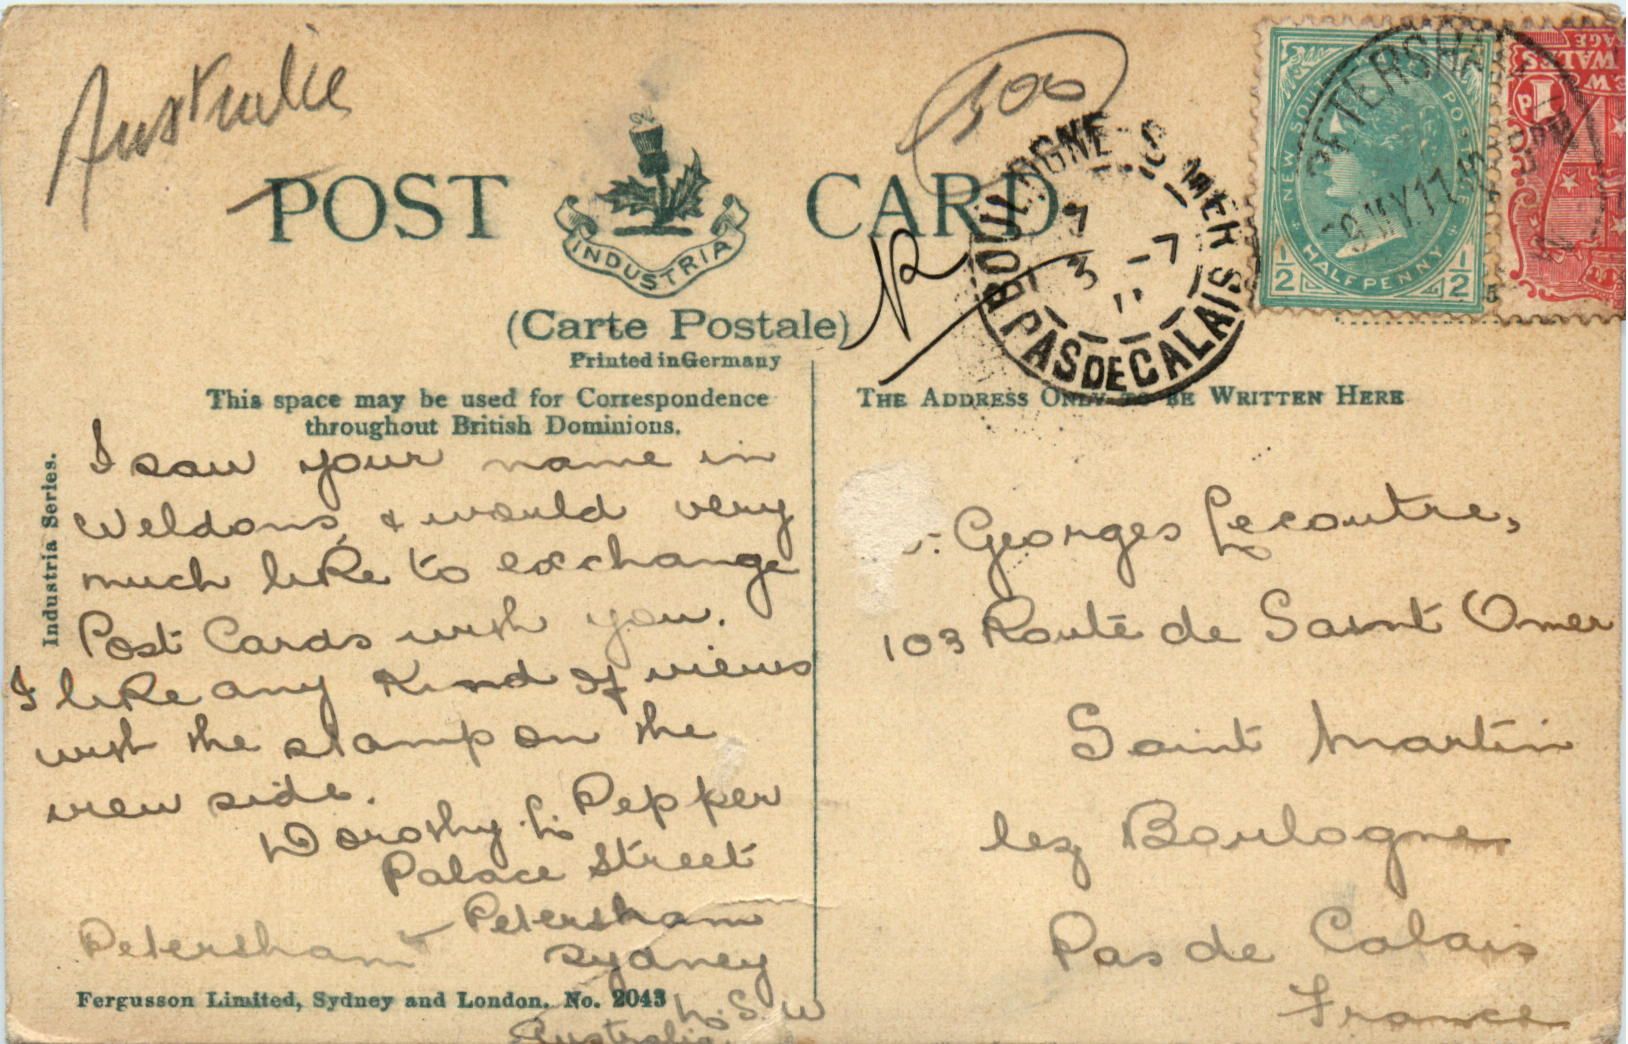 Australie
500
POST CARD
INDUSTRIA
(Carte Postale)
Printed in Germany
R
BOULOGNE S MER
7
3 -7
11
PAS DE CALAIS
PETERSHAM
5 PM
9 MY 11
NEW SOUTH WALES POSTAGE
HALFPENNY
1/2 1/2
NEW
WALES
AGE
1
D
This space may be used for Correspondence
throughout British Dominions.
Industria Series.
I saw your name in
Weldons, & would very
much like to exchange
Post Cards with you.
I like any kind of views
with the stamp on the
view side.
Dorothy L. Pepper
Palace Street
Petersham
Sydney
N.S.W
Australia
Petersham
Fergusson Limited, Sydney and London. No. 2043
THE ADDRESS ONLY TO BE WRITTEN HERE
Georges Lecoutre,
103 Route de Saint Omer
Saint Martin
lez Boulogne
Pas de Calais
France